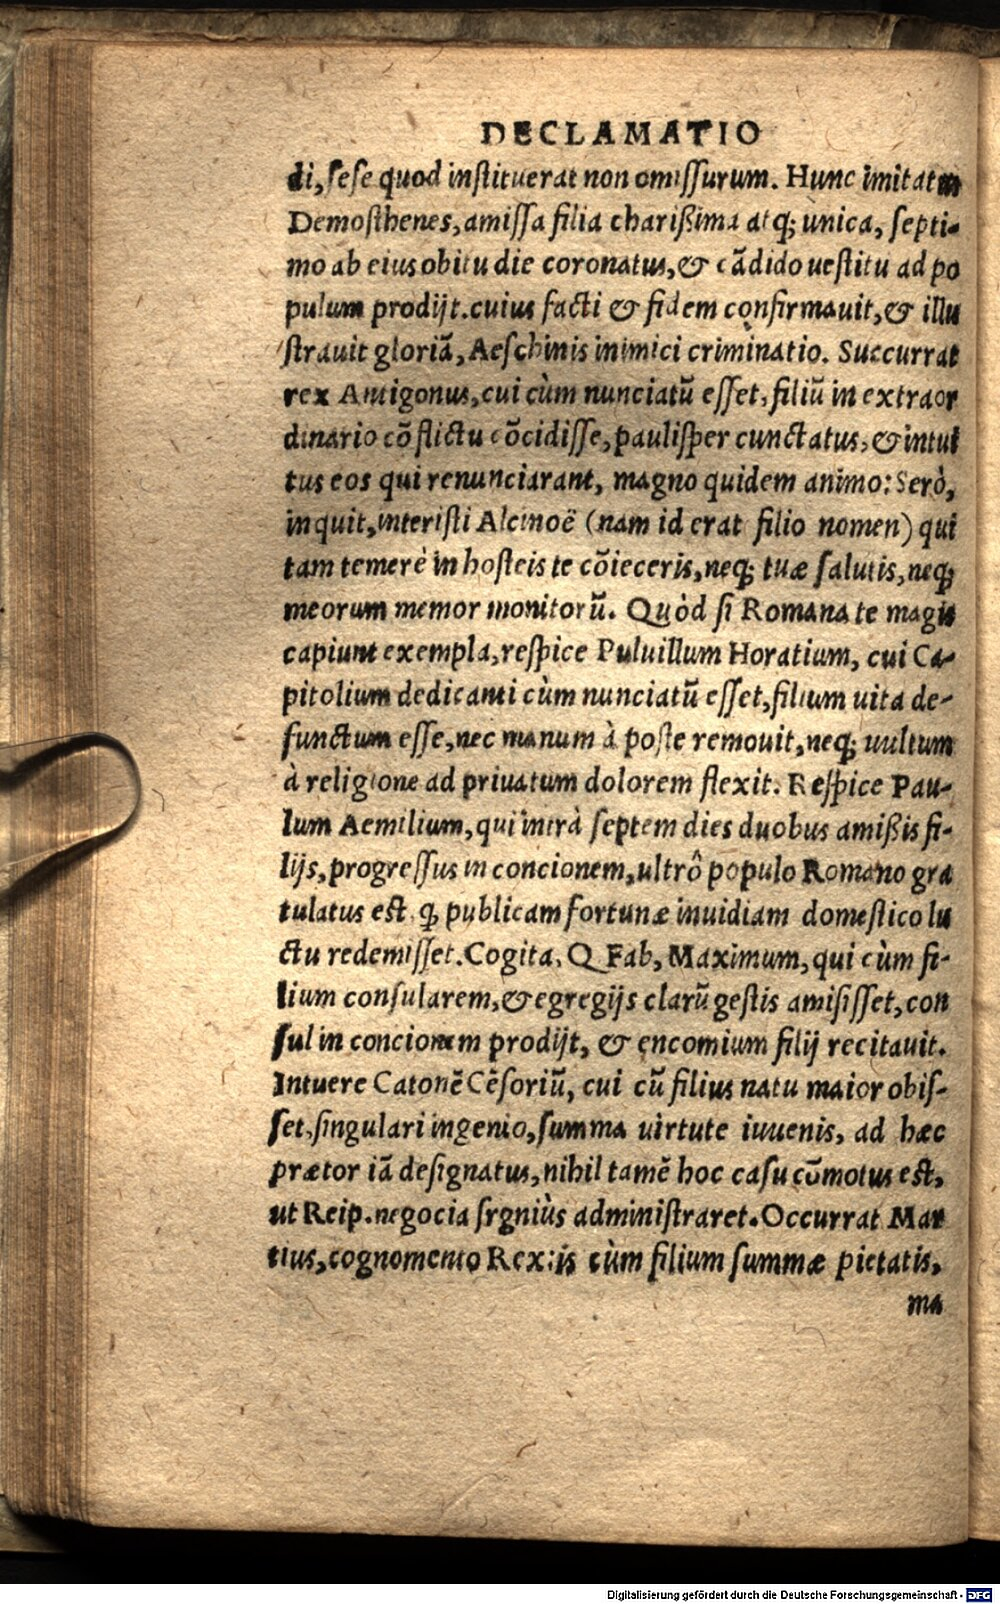 DECLAMATIO
di, sese quod instituerat non omissurum. Hunc imitatus
Demosthenes, amissa filia charißima atq; unica, septi-
mo ab eius obitu die coronatus, & cãdido uestitu ad po
pulum prodijt. cuius facti & fidem confirmauit, & illu
strauit gloriã, Aeschinis inimici criminatio. Succurrat
rex Antigonus, cui cùm nunciatũ esset, filiũ in extraor
dinario cõflictu cõcidisse, paulisper cunctatus, & intui
tus eos qui renunciarant, magno quidem animo: Serò,
inquit, interijsti Alcinoë (nam id erat filio nomen) qui
tam temerè in hosteis te cõieceris, neq; tuæ salutis, neq;
meorum memor monitorũ. Quòd si Romana te magis
capiunt exempla, respice Puluillum Horatium, cui Ca-
pitolium dedicanti cùm nunciatũ esset, filium uita de-
functum esse, nec manum à poste remouit, neq; uultum
à religione ad priuatum dolorem flexit. Respice Pau-
lum Aemilium, qui intrà septem dies duobus amißis fi-
lijs, progressus in concionem, ultrô populo Romano gra
tulatus est, q̃ publicam fortunæ inuidiam domestico lu
ctu redemisset. Cogita, Q. Fab, Maximum, qui cùm fi-
lium consularem, & egregijs clarũ gestis amisisset, con
sul in concionem prodijt, & encomium filij recitauit.
Intuere Catonẽ Cẽsoriũ, cui cũ filius natu maior obis-
set, singulari ingenio, summa uirtute iuuenis, ad hæc
prætor iã designatus, nihil tamẽ hoc casu cõmotus est,
ut Reip. negocia srgniùs administraret. Occurrat Mar
tius, cognomento Rex: is cùm filium summæ pietatis,
ma
Digitalisierung gefördert durch die Deutsche Forschungsgemeinschaft - DFG